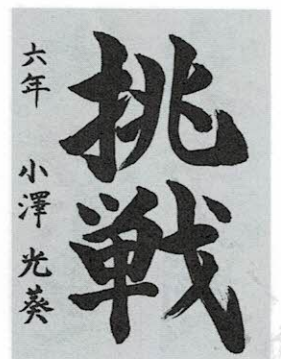 挑戦
六年 小澤 光葵